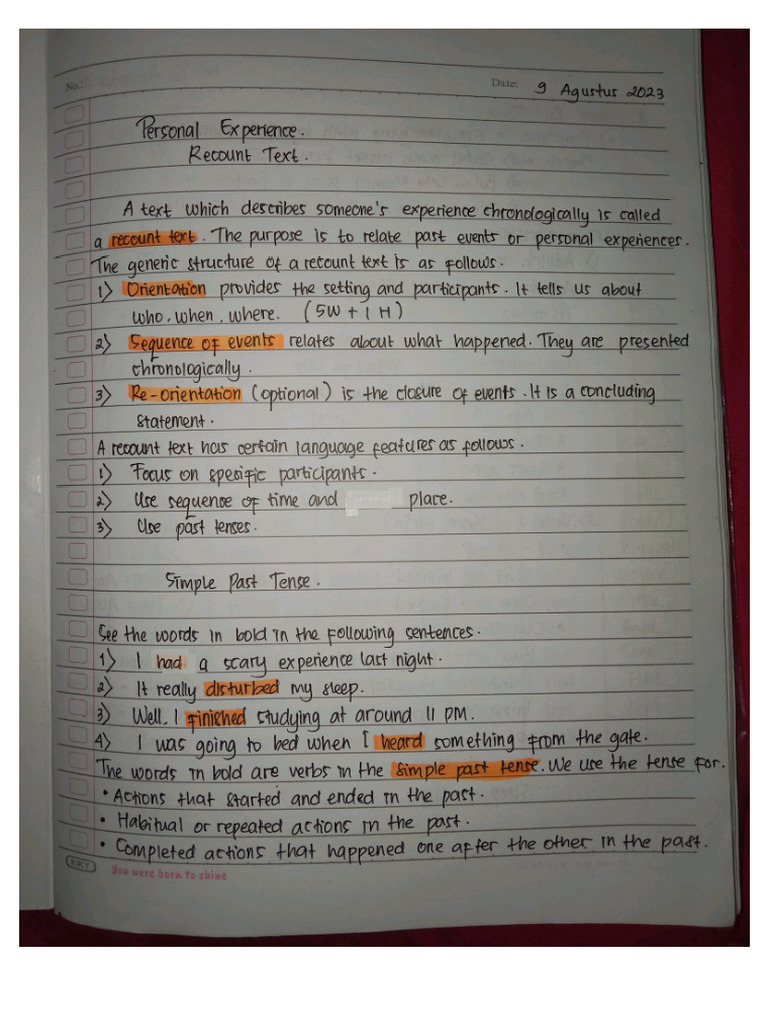 No.:
Date: 9 Agustus 2023
Personal Experience.
Recount Text.
A text which describes someone's experience chronologically is called
a recount text. The purpose is to relate past events or personal experiences.
The generic structure of a recount text is as follows.
1) Orientation provides the setting and participants. It tells us about
who, when, where. (5W + 1 H)
2) Sequence of events relates about what happened. They are presented
chronologically.
3) Re-orientation (optional) is the closure of events. It is a concluding
statement.
A recount text has certain language features as follows.
1) Focus on specific participants.
2) Use sequence of time and place.
3) Use past tenses.
Simple Past Tense.
See the words in bold in the following sentences.
1) I had a scary experience last night.
2) It really disturbed my sleep.
3) Well, I finished studying at around 11 PM.
4) I was going to bed when I heard something from the gate.
The words in bold are verbs in the simple past tense. We use the tense for.
• Actions that started and ended in the past.
• Habitual or repeated actions in the past.
• Completed actions that happened one after the other in the past.
KKY You were born to shine